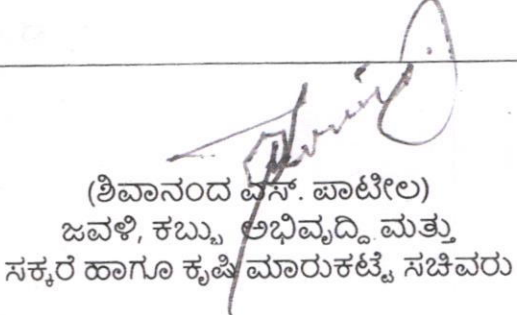 (ಶಿವಾನಂದ ಎಸ್. ಪಾಟೀಲ)
ಜವಳಿ, ಕಬ್ಬು ಅಭಿವೃದ್ಧಿ ಮತ್ತು
ಸಕ್ಕರೆ ಹಾಗೂ ಕೃಷಿ ಮಾರುಕಟ್ಟೆ ಸಚಿವರು